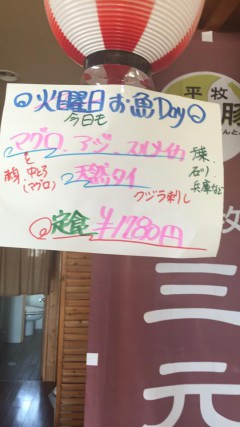 火曜日お魚Day
今日も
マグロ、アジ、スルメイカ
と
赤身、中とろ
(マグロ)
天然タイ
クジラ刺し
千葉
石川
兵庫など
定食 ¥1780円
平牧
豚
三元